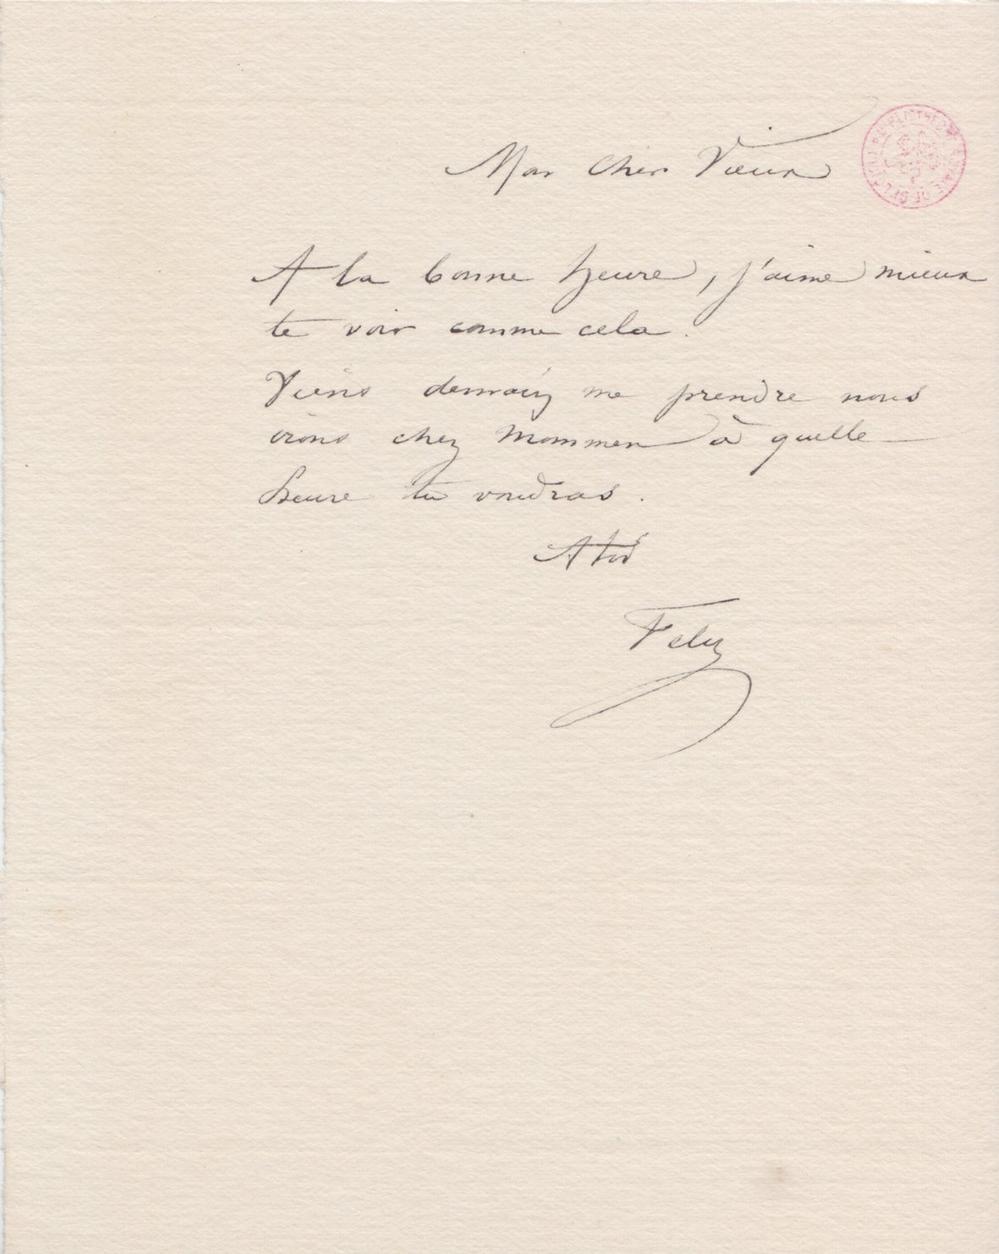 Mon cher Vieux
A la bonne heure, j'aime mieux
te voir comme cela.
Viens demain me prendre nous
irons chez Mommen à quelle
heure tu voudras.
A toi
Felix